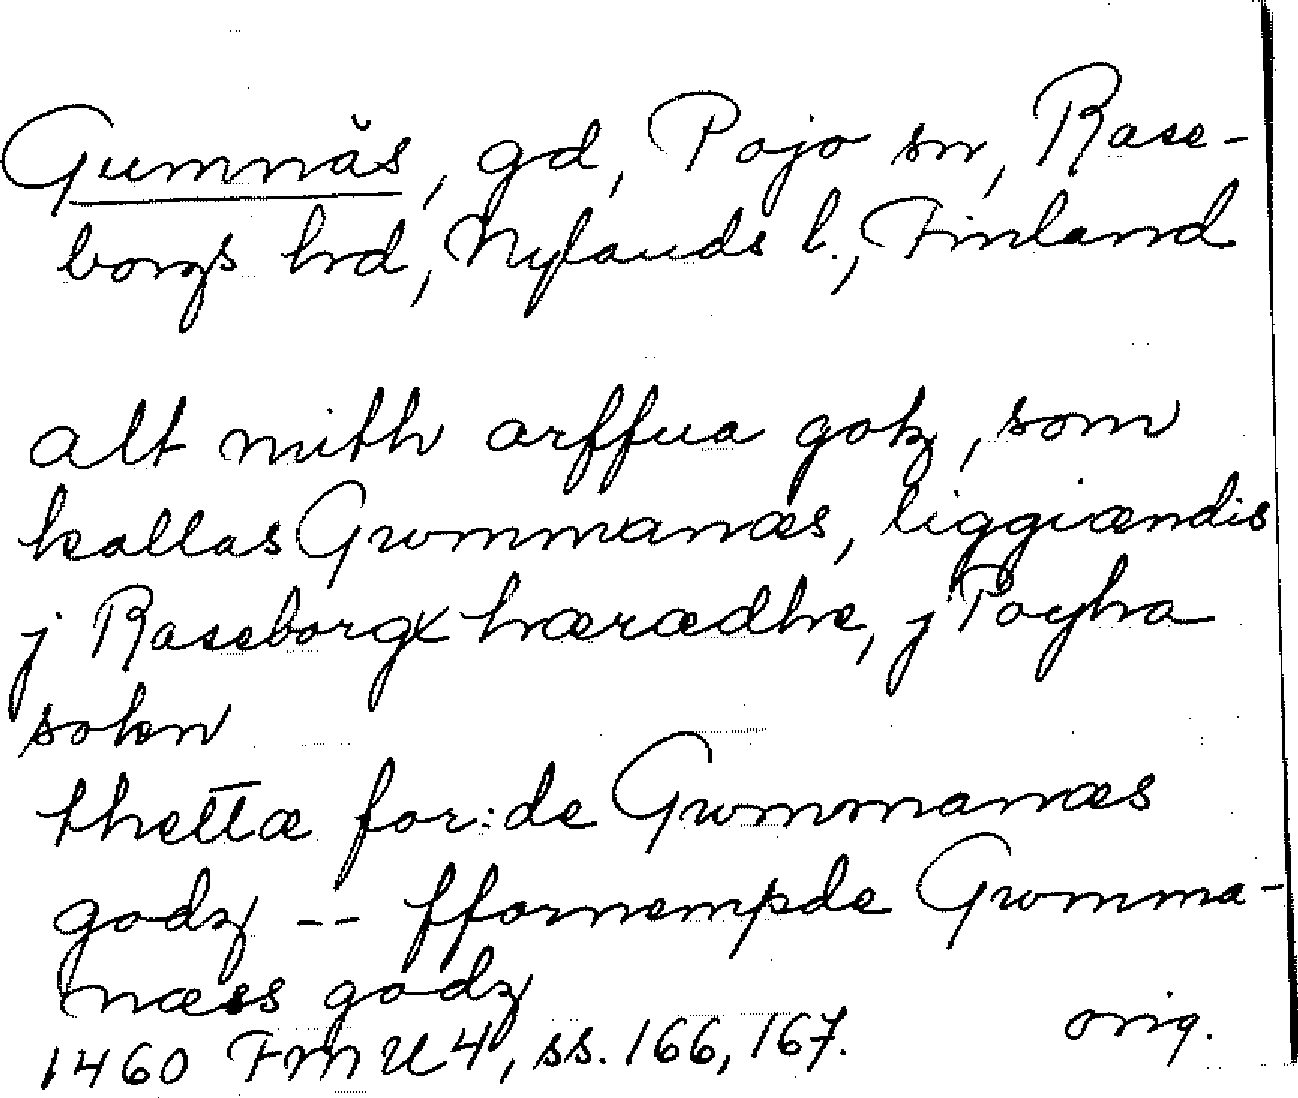 Gumnäs, gd, Pojo sn, Rase-
borgs hrd, Nylands l., Finland
alt mith arffua gotz, som
kallas Gwmmanæs, liggiændis
j Raseborgx hærædhe, j Poyha
sokn
thettæ for:de Gwmmanæs
godz -- ffornempde Gwmma-
næss godz
1460 FMU 4, ss. 166, 167. orig.